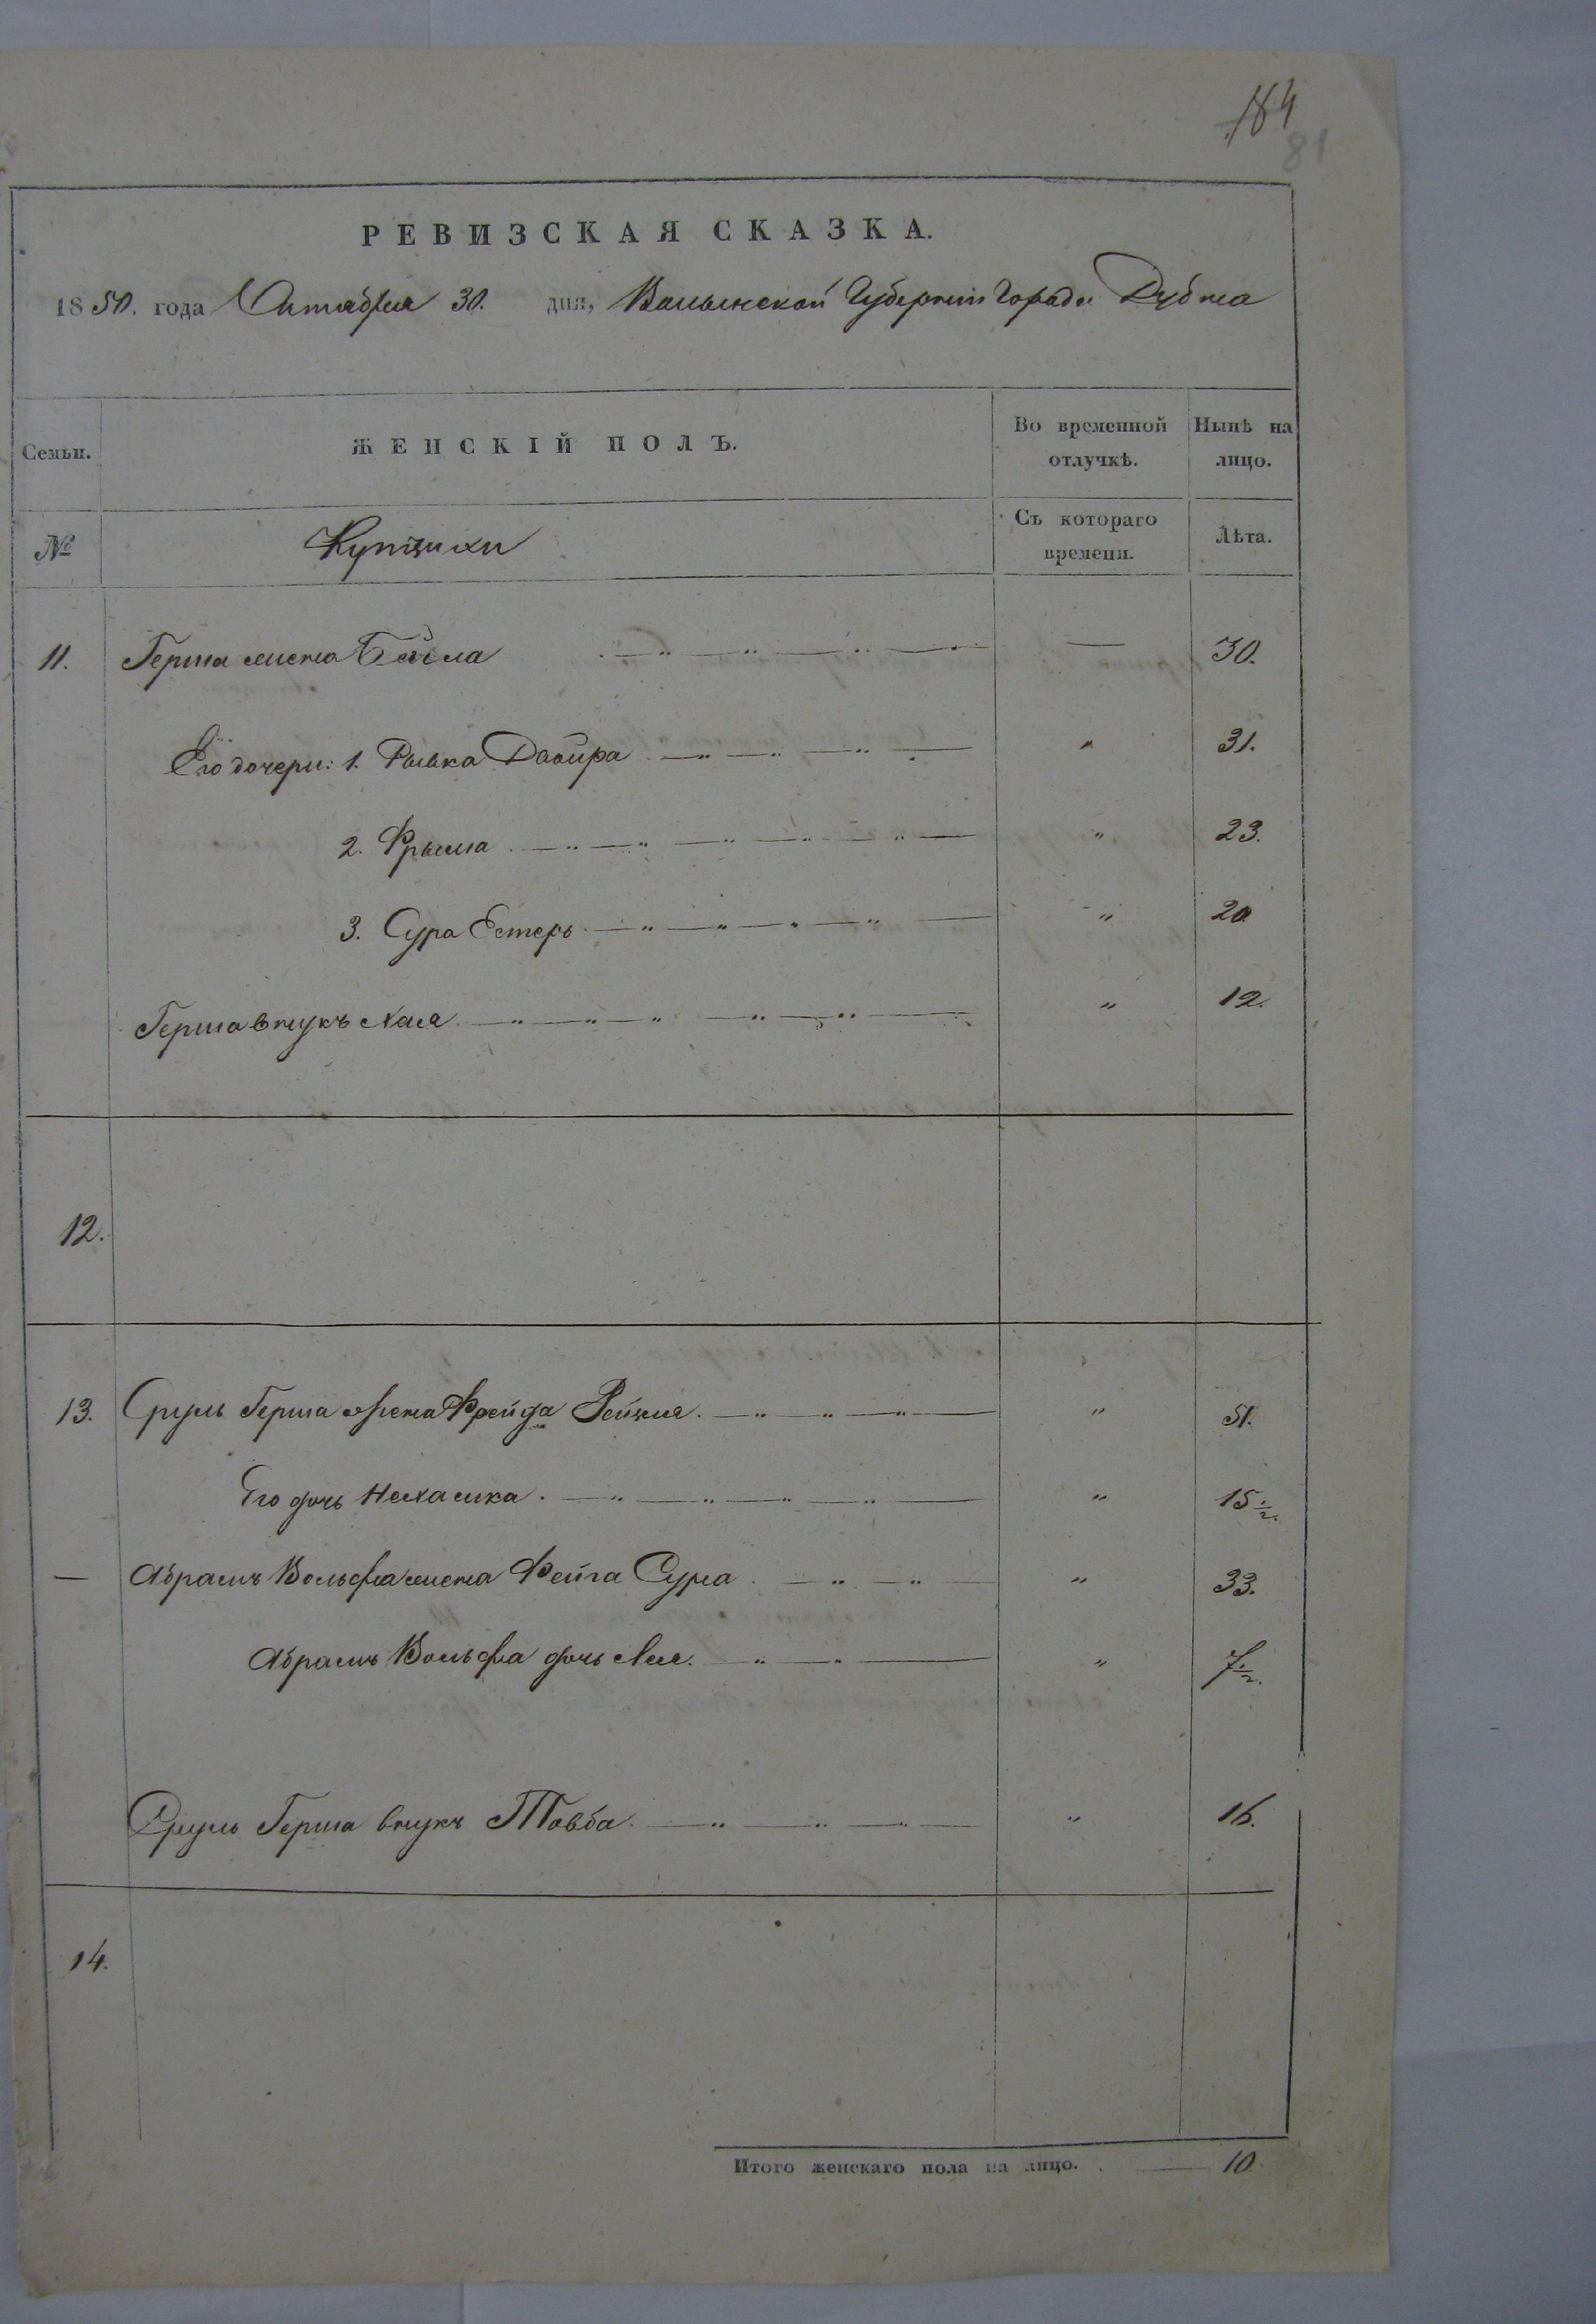 184
81
РЕВИЗСКАЯ СКАЗКА.
1850. года Октября 30. дня, Волынской Губернии Города Дубна
Семьи. ЖЕНСКІЙ ПОЛЪ. Во временной отлучкѣ. Нынѣ на лицо.
№ Купчихи Съ котораго времени. Лѣта.
11. Герша жена Бейла — 30.
Его дочери: 1. Рывка Двойра " 31.
2. Фрыма " 23.
3. Сура Естеръ " 20
Герша внукъ Хая " 12.
12.
13. Сруль Герша жена Фрейда Рейзля " 51.
Его дочь Нехамка " 15 1/2.
— Абрамъ Вольфа жена Фейга Сура " 33.
Абрамъ Вольфа дочь Лея " 7 1/2.
Сруль Герша внукъ Товба " 16.
14.
Итого женскаго пола на лицо. 10